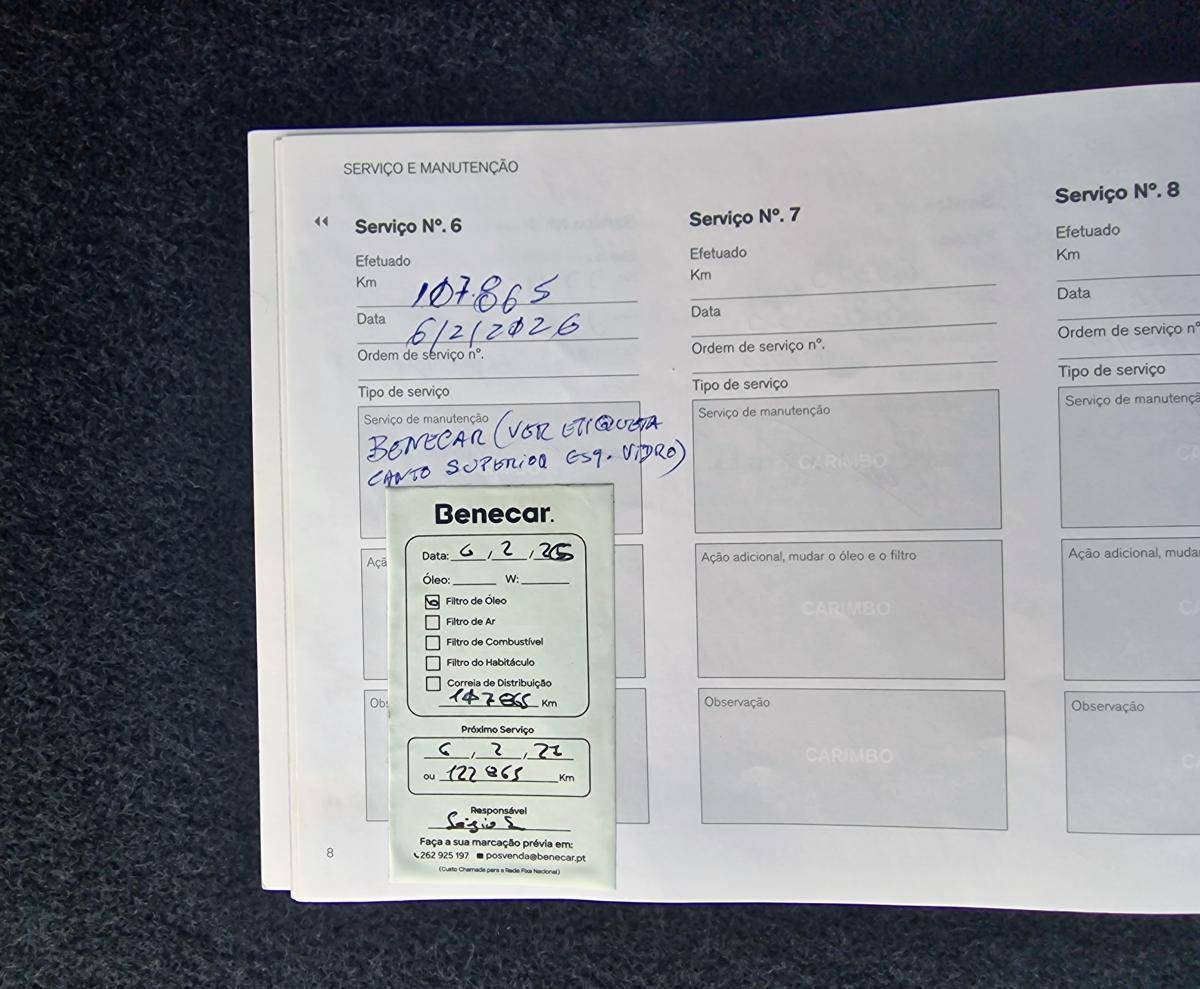 SERVIÇO E MANUTENÇÃO
Serviço Nº. 6
Efetuado
Km 107.865
Data 6/2/2026
Ordem de serviço nº.
Tipo de serviço
Serviço de manutenção
BENECAR (VER ETIQUETA
CANTO SUPERIOR ESQ. VIDRO)
Açã
Obs
Benecar.
Data: 6 , 2 , 26
Óleo: W:
Filtro de Óleo
Filtro de Ar
Filtro de Combustível
Filtro do Habitáculo
Correia de Distribuição
107865 Km
Próximo Serviço
6 , 2 , 27
ou 122865 Km
Responsável
Sérgio S
Faça a sua marcação prévia em:
262 925 197 posvenda@benecar.pt
(Custo Chamada para a Rede Fixa Nacional)
8
Serviço Nº. 7
Efetuado
Km
Data
Ordem de serviço nº.
Tipo de serviço
Serviço de manutenção
CARIMBO
Ação adicional, mudar o óleo e o filtro
CARIMBO
Observação
CARIMBO
Serviço Nº. 8
Efetuado
Km
Data
Ordem de serviço nº
Tipo de serviço
Serviço de manutençã
CA
Ação adicional, muda
C
Observação
C